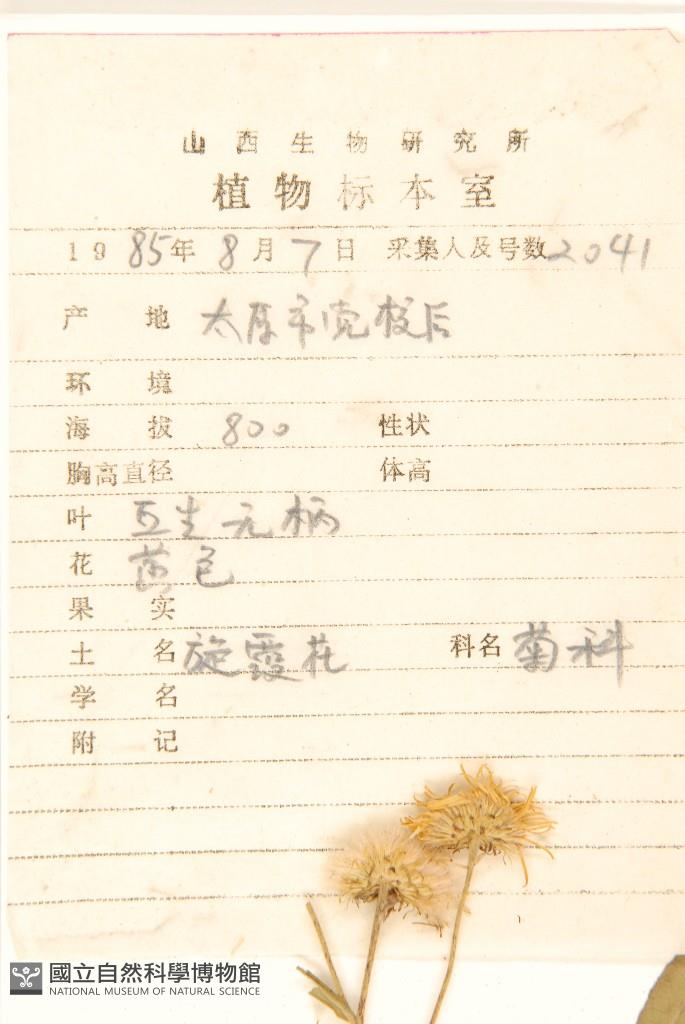 山西生物研究所
植物标本室
1985年8月7日 采集人及号数2041
产地 太原市党校后
环境
海拔 800 性状
胸高直径 体高
叶 互生 无柄
花 黄色
果实
土名 旋覆花 科名 菊科
学名
附记
國立自然科學博物館
NATIONAL MUSEUM OF NATURAL SCIENCE